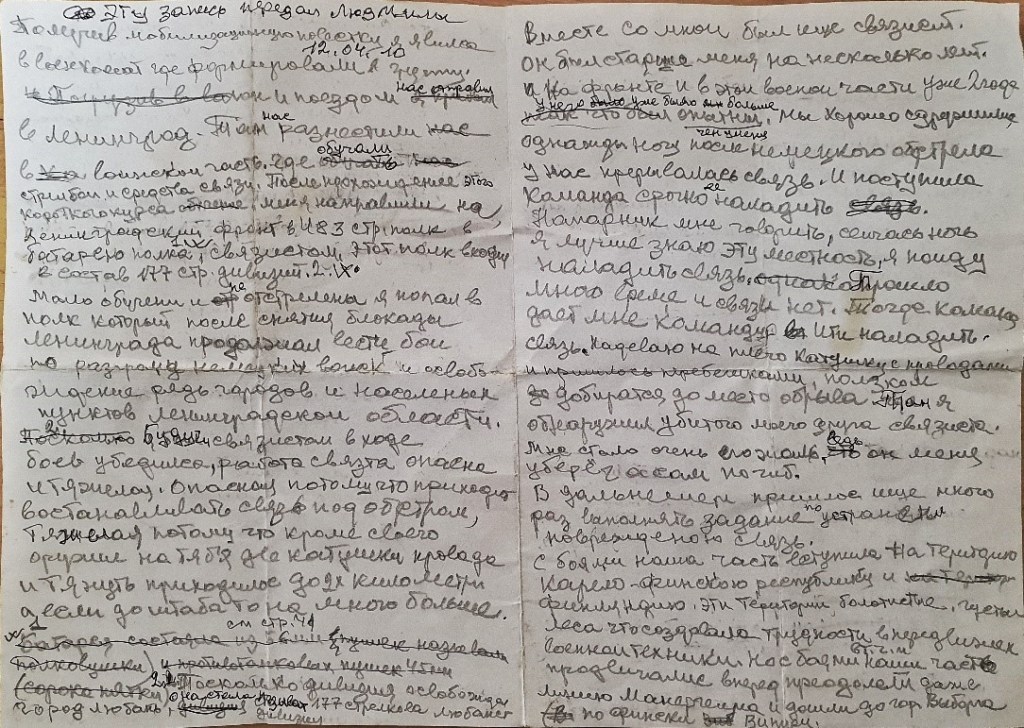 Эту запись передал Людмили
Получив мобилизационную повестку я явился
12.04.10
в военкомат где формировали
и поездом нас отправили
в Ленинград. Там нас разместили
в воинской части. Где обучали
стрельбам и средства связи. После прохождение этого
короткого курса меня направили на
Ленинградский фронт в 483 стр. полк в
батарею полка, связистом. Этот полк входил
в состав 177 стр. дивизии.
Мало обучены и не отстрелены я попал в
полк который после снятия блокады
Ленинграда продолжал вести бои
по разгрому немецких войск и освобо-
ждения рядь городов и населеных
пунктов Ленинградской области.
связистом в ходе
боев убедился, работа связта опасна
и тяжелая. Опасная потому что приходит
востанавливать связь под обстрелом,
Тяжелая потому что кроме своего
оружие на тебя две катушки провада
и тянуть приходилос до 2х километри
а если до штаба то на много больше.
см стр. 4
батарея состояла из
полковушки) и противотанковых пушек
(сорока пятки) Посколко дивизия освобождал
город Любань, она стала 177 стрелкова любанст
дивизии
Вместе со мной был еще связист.
Он был старше меня на несколько лет.
На фронте и в этой воской части уже 2 года
у него уже было больше
опытный. Мы хорошо сдружились
однажды ночу после немецкого обстрела
у нас прерывалась связь. И поступила
команда срочно ее наладить связь.
Напарник мне говорить, сейчась ночь
я лучше знаю эту местность, я пойду
наладить связь. однако Прошло
много време и связи нет. Тогде команд
дает мне команду идти наладить
связь. Надеваю на плечо катушку с проводами
и пришлось перебежками, ползком
добиратся до место обрыва. Там я
обнаружил убитого моего друга связиста.
Мне стало очень его жаль, ведь он меня
уберёг а сам погиб.
В дальнейшем пришлос ище много
раз выполнять задание по устранении
поврежденою связь.
С боями наша часть вступила на територию
Карело-финскою республику и
финляндию. Эти територии болотистые, густые
леса что создавала трудности в передвижен
военной техники. Но с боями наши часть
продвигалис вперед преодолели даже
линию Манергейма и дошли до гор. Выборга
по фински Виипури.